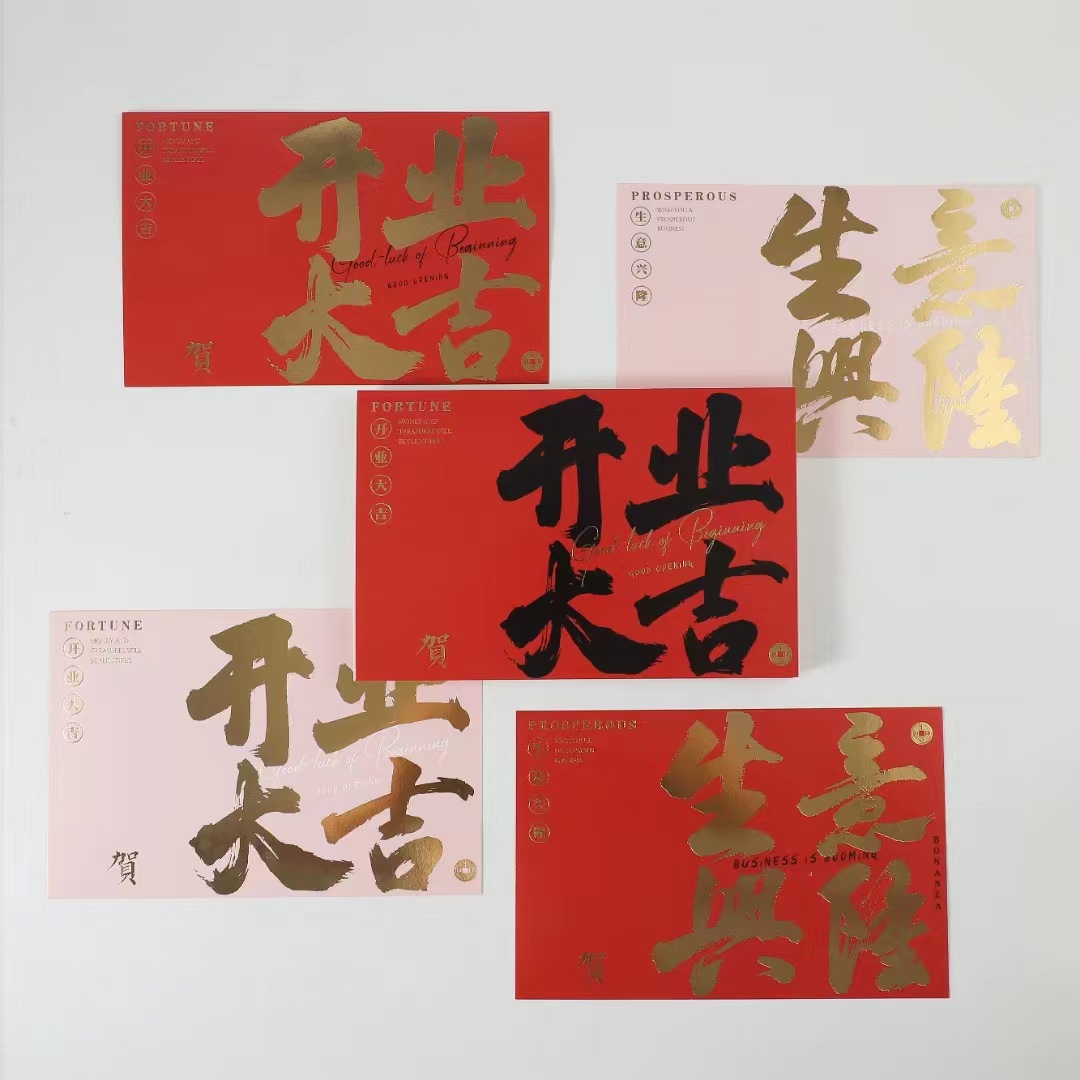 FORTUNE
MONEY AND
TREASURES WILL
BE PLENTIFUL
开业大吉
开业
大吉
Good-luck of Beginning
GOOD OPENING
賀
PROSPEROUS
WISH YOU A
PROSPEROUS
BUSINESS
生意兴隆
生意
興隆
FORTUNE
MONEY AND
TREASURES WILL
BE PLENTIFUL
开业大吉
开业
大吉
Good-luck of Beginning
GOOD OPENING
賀
FORTUNE
MONEY AND
TREASURES WILL
BE PLENTIFUL
开业大吉
开业
大吉
Good-luck of Beginning
GOOD OPENING
賀
PROSPEROUS
生意兴隆
生意
興隆
BUSINESS IS BOOMING
BONANZA
賀